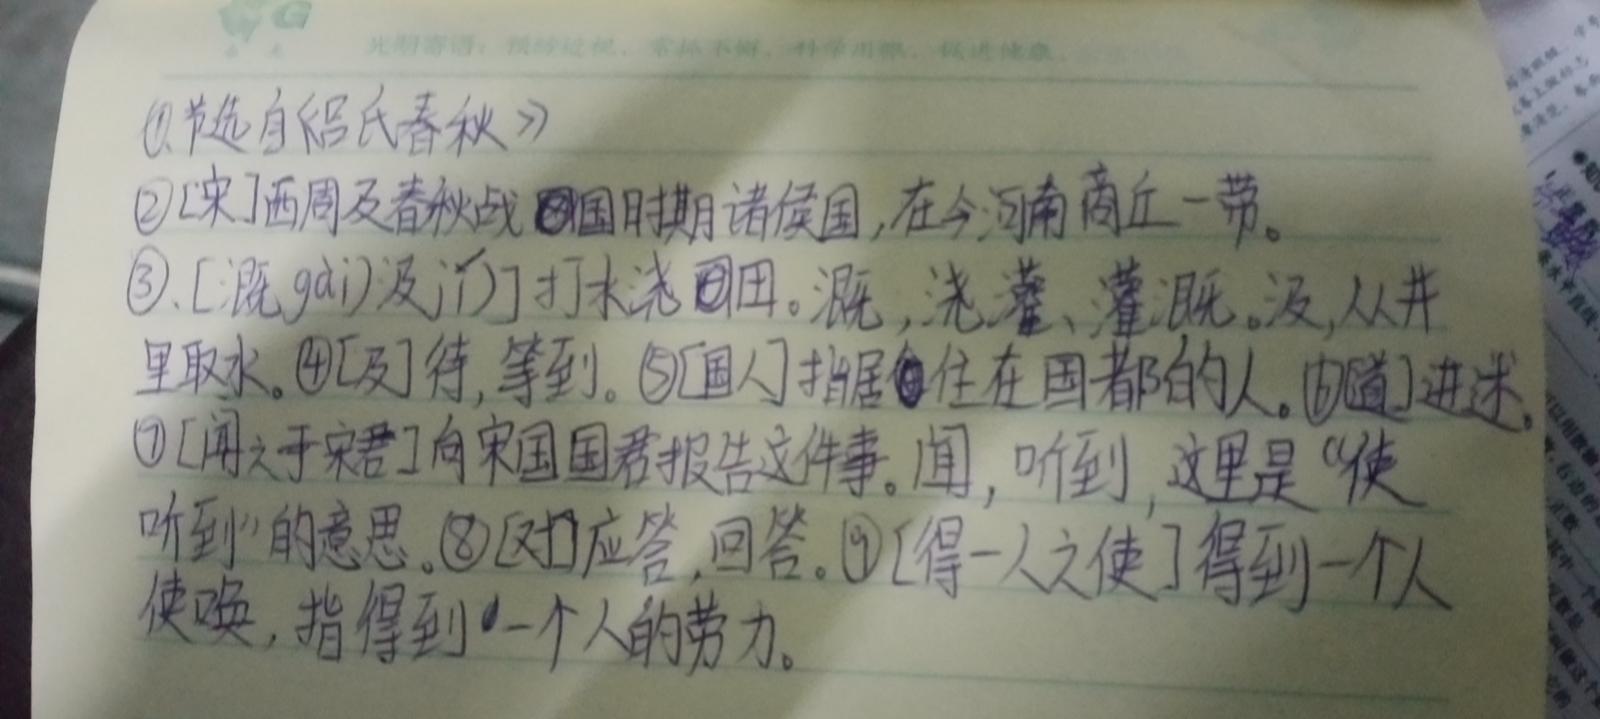 光明寄语：预防近视，常抓不懈，科学用眼，促进健康。
①.节选自《吕氏春秋》
②[宋]西周及春秋战国时期诸侯国,在今河南商丘一带。
③.[溉gài)汲jí)]打水浇田。溉,浇灌、灌溉。汲,从井
里取水。④[及]待,等到。⑤[国人]指居住在国都的人。⑥[道]讲述。
⑦[闻之于宋君]向宋国国君报告这件事。闻,听到,这里是“使
听到”的意思。⑧[对]应答,回答。⑨[得一人之使]得到一个人
使唤,指得到一个人的劳力。